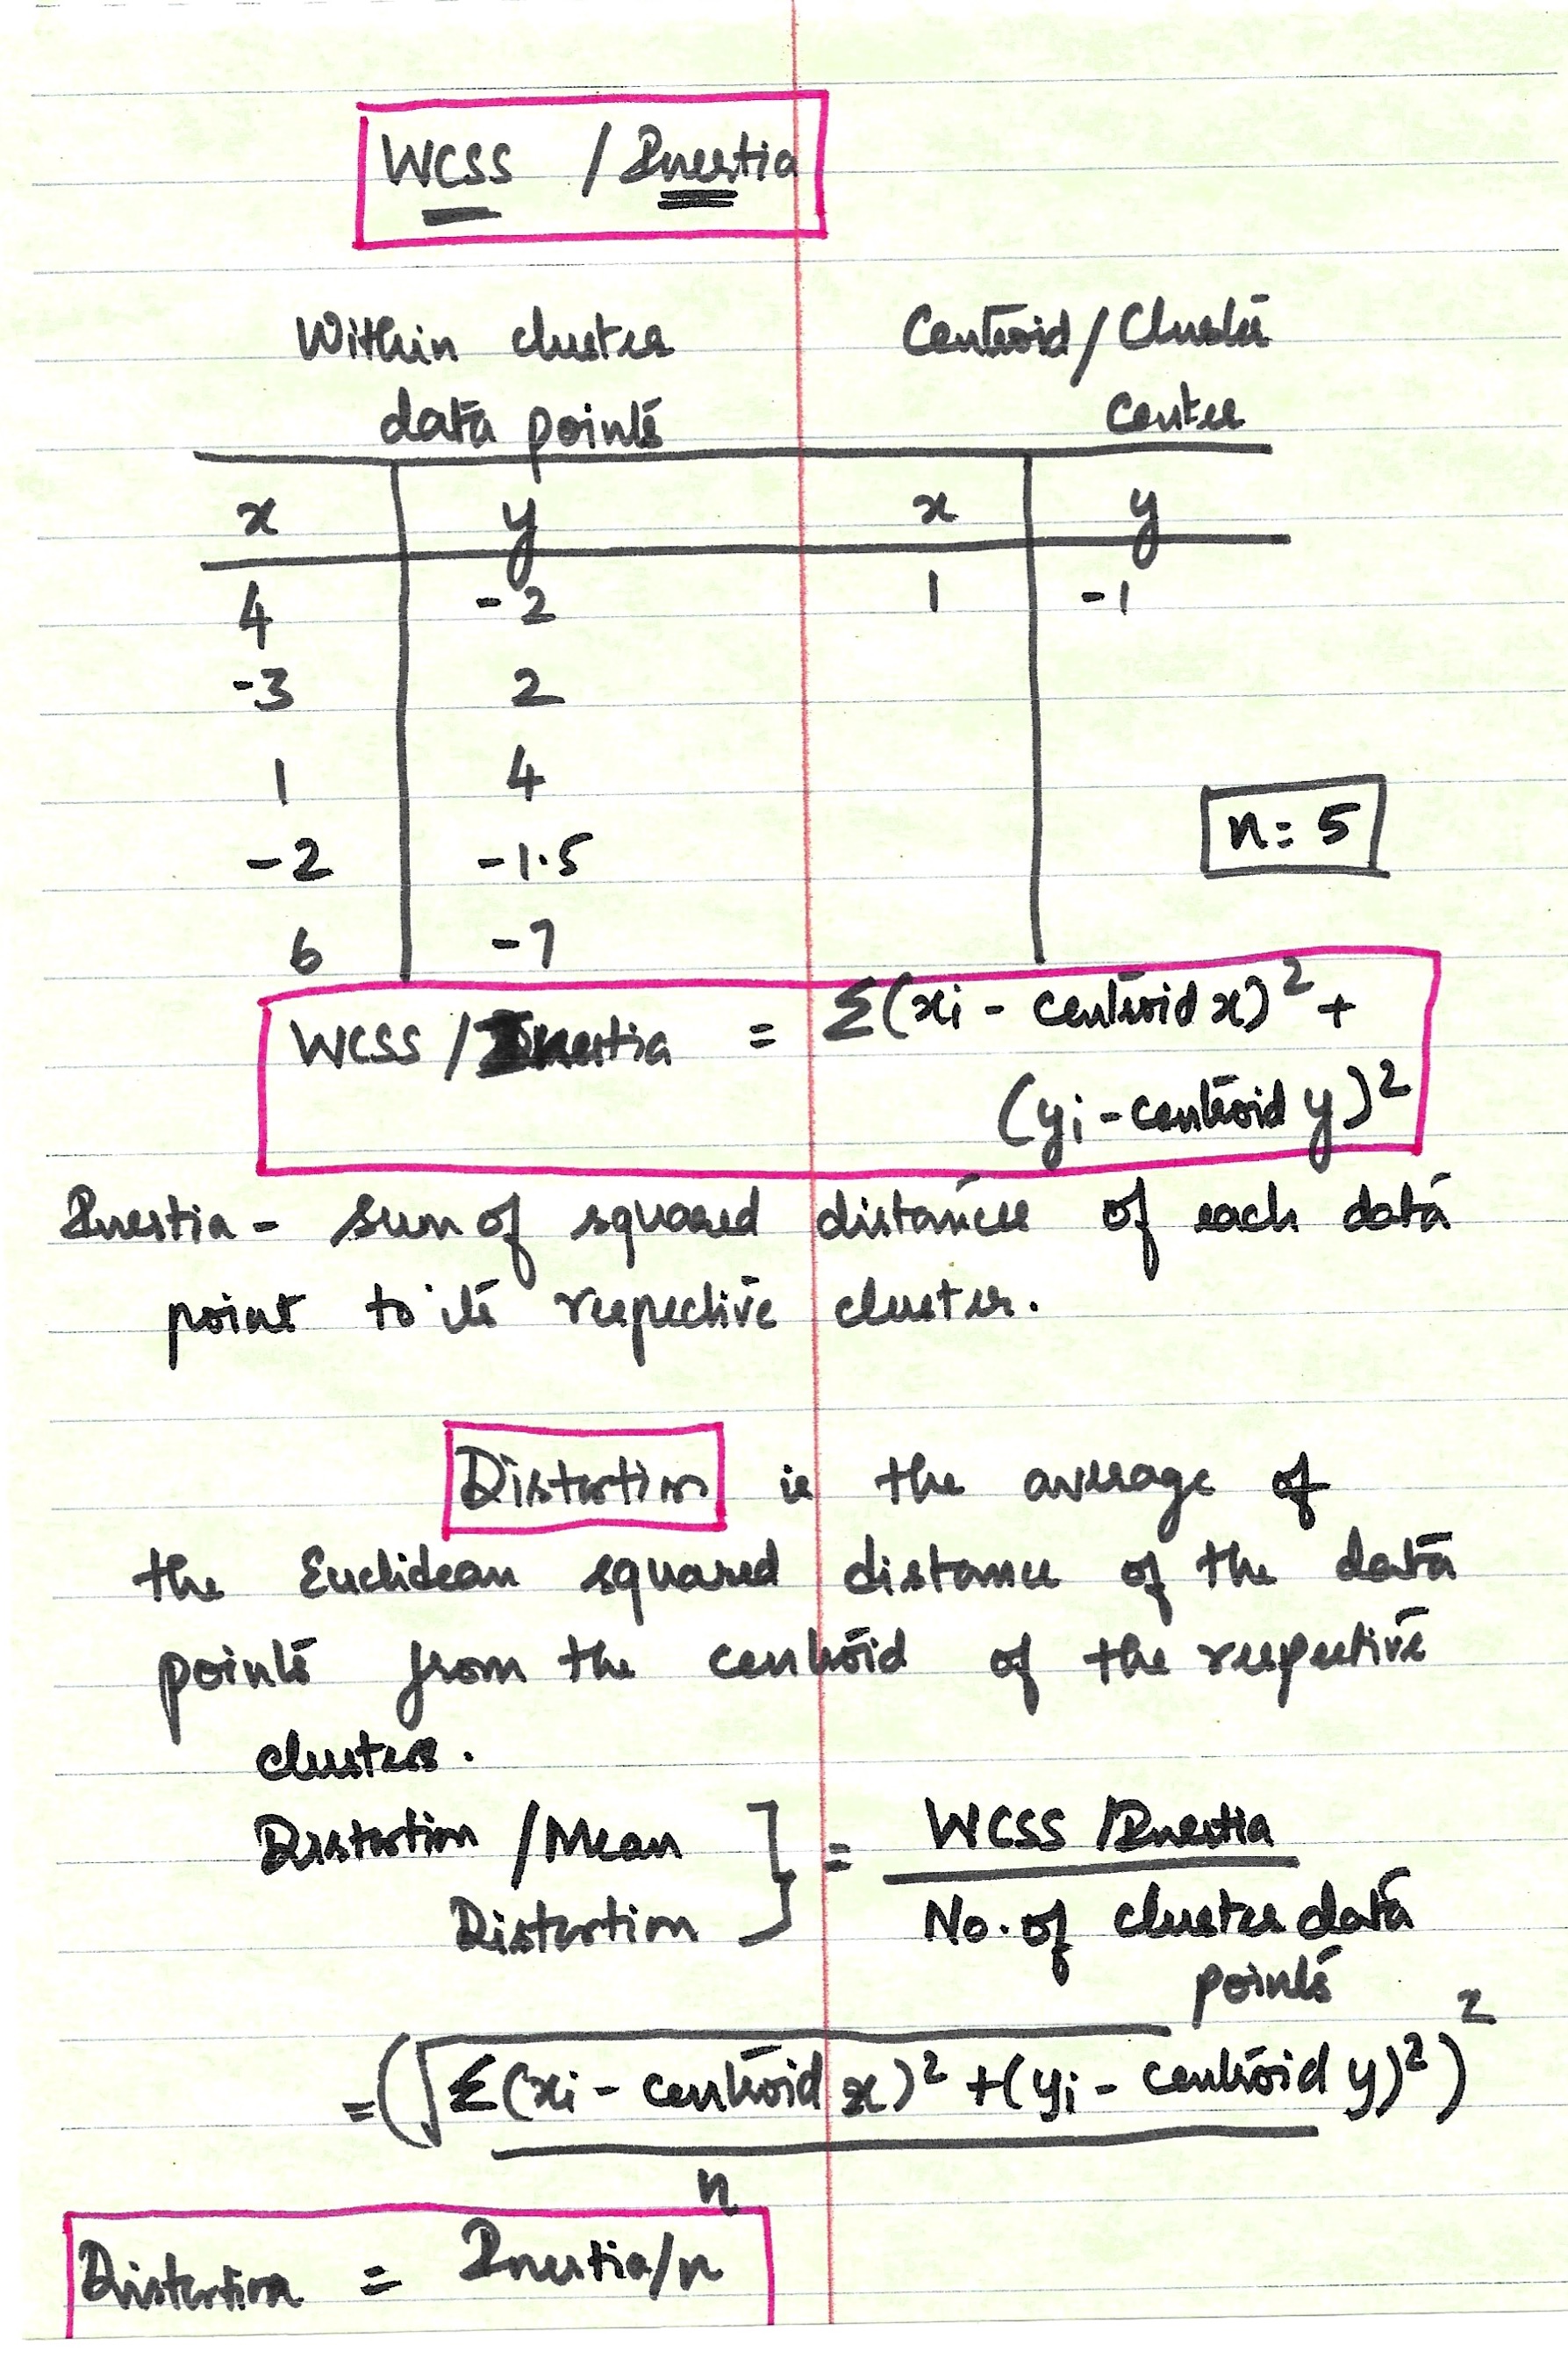 WCSS / Inertia
Within cluster Centroid / Cluster
data points center
x y x y
4 -2 1 -1
-3 2
1 4
n = 5
-2 -1.5
6 -7
WCSS / Inertia = Σ(xi - centroid x)² +
(yi - centroid y)²
Inertia - sum of squared distances of each data
point to its respective cluster.
Distortion is the average of
the Euclidean squared distance of the data
points from the centroid of the respective
clusters.
Distortion / Mean } = WCSS / Inertia
Distortion No. of cluster data
points
= (√Σ(xi - centroid x)² + (yi - centroid y)²)²
n
Distortion = Inertia/n